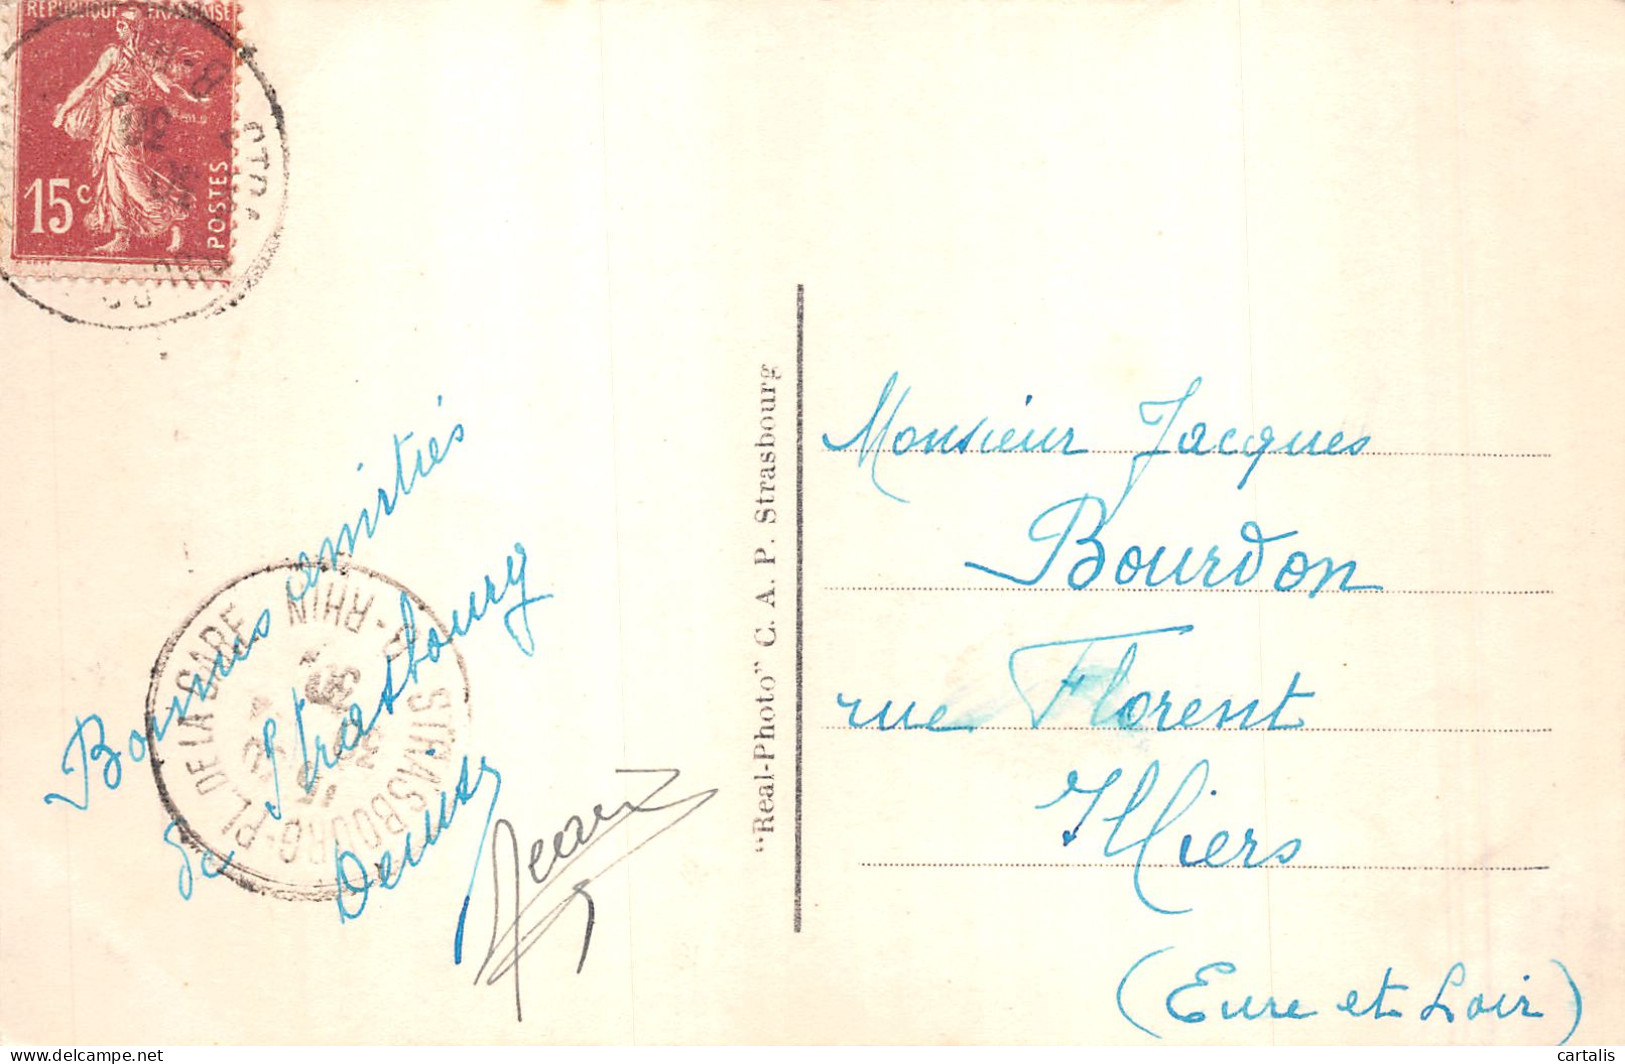 REPUBLIQUE FRANCAISE
15c
POSTES
Bonnes amitiés
de Strasbourg
Denise
STRASBOURG-PL. DE LA GARE
B-RHIN
"Real-Photo" C. A. P. Strasbourg
Monsieur Jacques
Bourdon
rue Florent
Illiers
(Eure et Loir)
cartalis